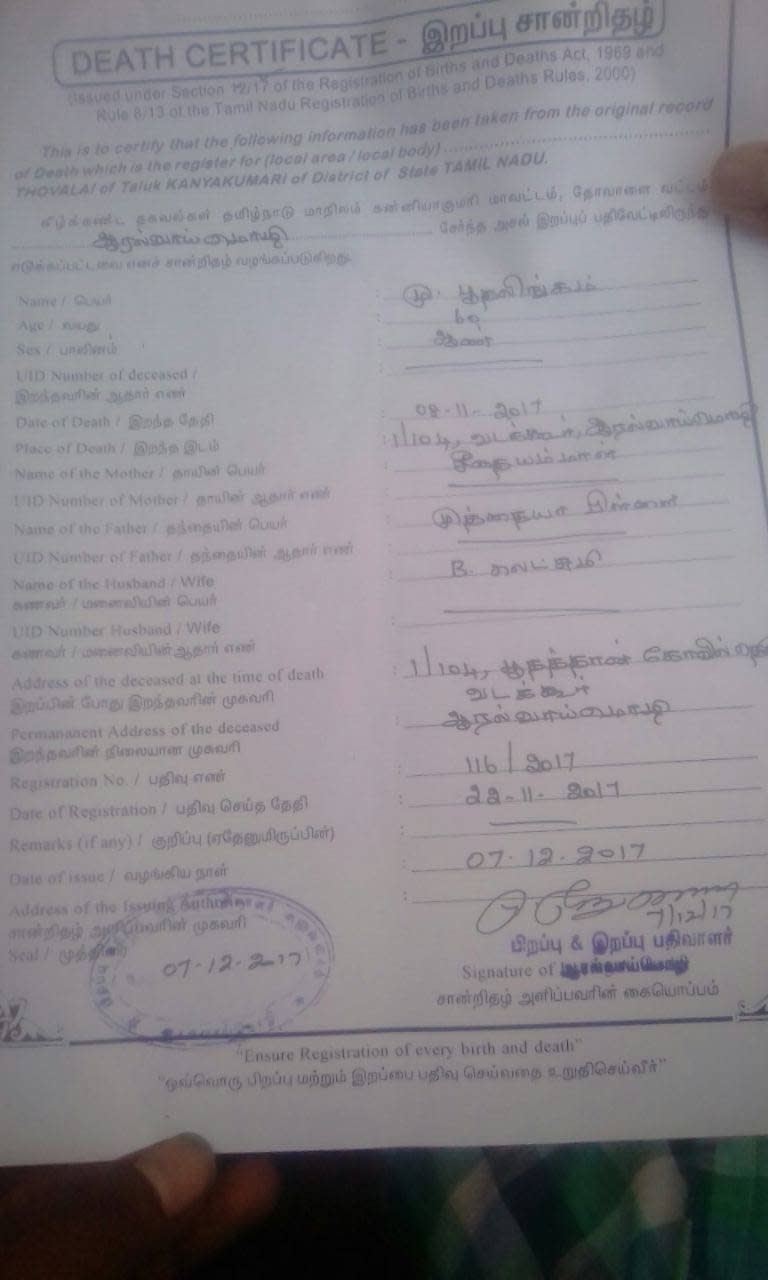 DEATH CERTIFICATE - இறப்பு சான்றிதழ்
(Issued under Section 12/17 of the Registration of Births and Deaths Act, 1969 and
Rule 8/13 of the Tamil Nadu Registration of Births and Deaths Rules, 2000)
This is to certify that the following information has been taken from the original record
of Death which is the register for (local area / local body)
THOVALAI of Taluk KANYAKUMARI of District of State TAMIL NADU.
கீழ்க்கண்ட தகவல்கள் தமிழ்நாடு மாநிலம் கன்னியாகுமரி மாவட்டம், தோவாளை வட்டம்
ஆரல்வாய்மொழி சேர்ந்த அசல் இறப்புப் பதிவேட்டிலிருந்து
எடுக்கப்பட்டவை எனச் சான்றிதழ் வழங்கப்படுகிறது.
Name / பெயர் : மு. பூதலிங்கம்
Age / வயது : 69
Sex / பாலினம் : ஆண்
UID Number of deceased /
இறந்தவரின் ஆதார் எண்
Date of Death / இறந்த தேதி : 08-11-2017
Place of Death / இறந்த இடம் : 1/104, வடக்கூர், ஆரல்வாய்மொழி
Name of the Mother / தாயின் பெயர் : சீதையம்மாள்
UID Number of Mother / தாயின் ஆதார் எண்
Name of the Father / தந்தையின் பெயர் : முத்தையா பிள்ளை
UID Number of Father / தந்தையின் ஆதார் எண்
Name of the Husband / Wife
கணவர் / மனைவியின் பெயர் : B. லெட்சுமி
UID Number Husband / Wife
கணவர் / மனைவியின் ஆதார் எண்
Address of the deceased at the time of death : 1/104, பூதத்தான் கோவில் தெரு
இறப்பின் போது இறந்தவரின் முகவரி வடக்கூர்
Permananent Address of the deceased : ஆரல்வாய்மொழி
இறந்தவரின் நிலையான முகவரி
Registration No. / பதிவு எண் : 116/2017
Date of Registration / பதிவு செய்த தேதி : 22-11-2017
Remarks (if any) / குறிப்பு (ஏதேனுமிருப்பின்) :
Date of issue / வழங்கிய நாள் : 07.12.2017
Address of the Issuing Authority
சான்றிதழ் அளிப்பவரின் முகவரி 7/12/17
Seal / முத்திரை 07-12-2017
பிறப்பு & இறப்பு பதிவாளர்
Signature of ஆரல்வாய்மொழி
சான்றிதழ் அளிப்பவரின் கையொப்பம்
"Ensure Registration of every birth and death"
"ஒவ்வொரு பிறப்பு மற்றும் இறப்பை பதிவு செய்வதை உறுதிசெய்வீர்"